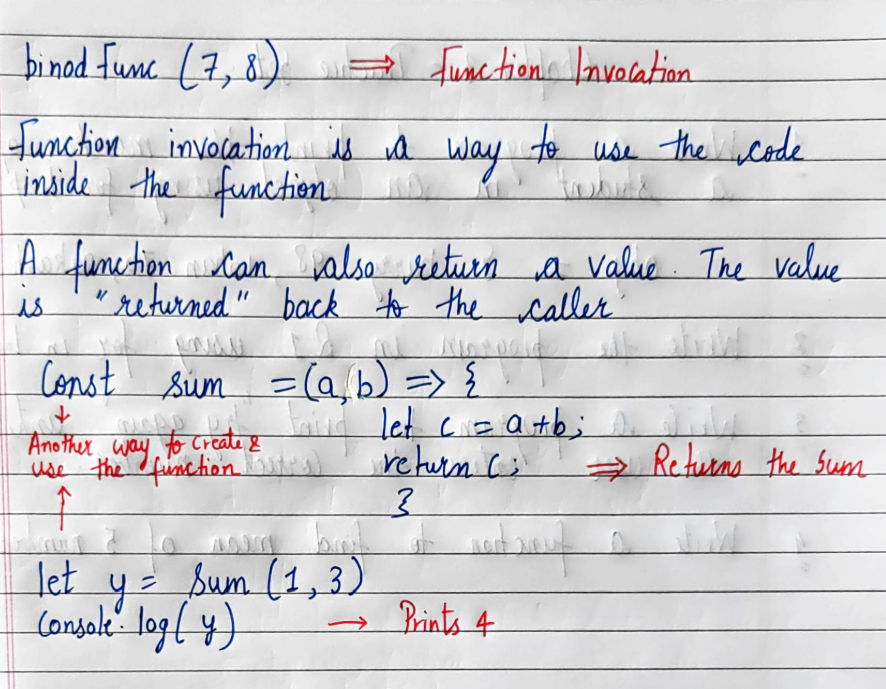 binod func (7, 8) ⇒ Function Invocation
Function invocation is a way to use the code
inside the function
A function can also return a value. The value
is "returned" back to the caller
Const sum = (a, b) => {
↓
let c = a+b;
Another way to Create &
use the function
return C; ⇒ Returns the Sum
↑
}
let y = Sum (1, 3)
Console. log( y) → Prints 4